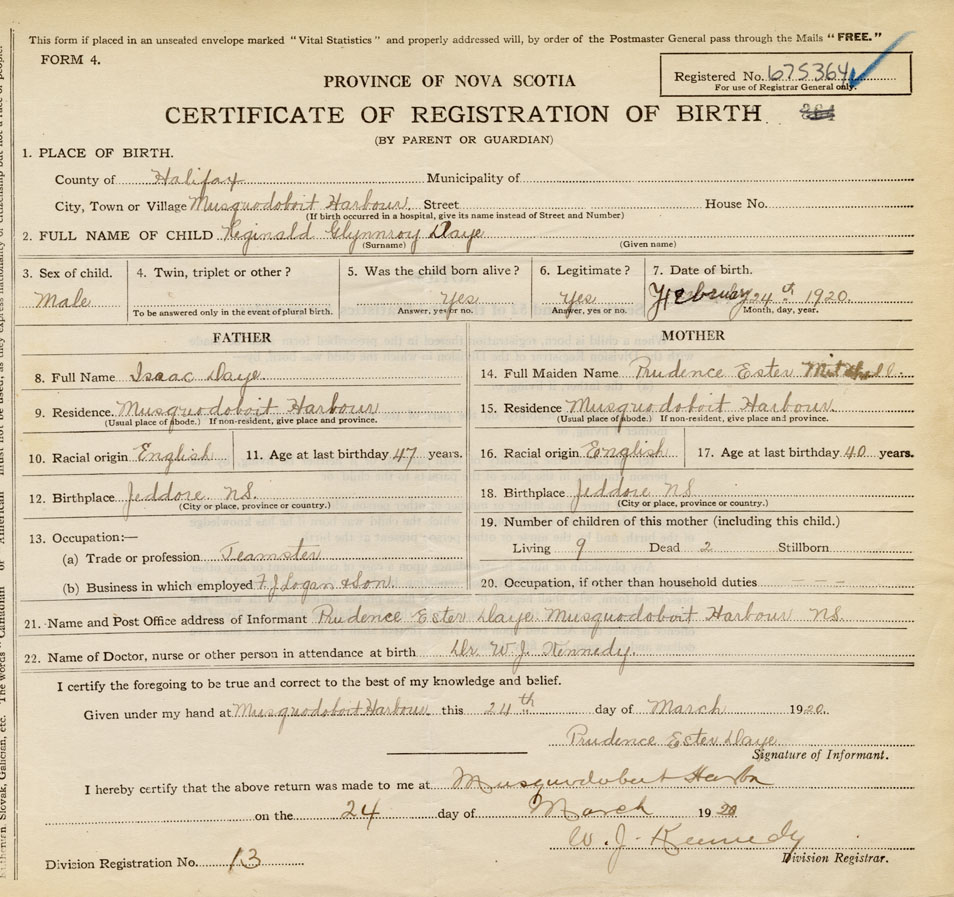 This form if placed in an unsealed envelope marked "Vital Statistics" and properly addressed will, by order of the Postmaster General pass through the Mails "FREE."
FORM 4.
Registered No. 675364
For use of Registrar General only.
PROVINCE OF NOVA SCOTIA
CERTIFICATE OF REGISTRATION OF BIRTH
(BY PARENT OR GUARDIAN)
1. PLACE OF BIRTH.
County of Halifax Municipality of
City, Town or Village Musquodoboit Harbour. Street House No.
(If birth occurred in a hospital, give its name instead of Street and Number)
2. FULL NAME OF CHILD Reginald Glynnroy Daye
(Surname) (Given name)
3. Sex of child. 4. Twin, triplet or other? 5. Was the child born alive? 6. Legitimate? 7. Date of birth.
Male Yes Yes February 24th 1920.
To be answered only in the event of plural birth. Answer, yes or no. Answer, yes or no. Month, day, year.
FATHER MOTHER
8. Full Name Isaac Daye
9. Residence. Musquodoboit Harbour
(Usual place of abode.) If non-resident, give place and province.
10. Racial origin English 11. Age at last birthday 47 years.
12. Birthplace Jeddore NS.
(City or place, province or country.)
13. Occupation:—
(a) Trade or profession Teamster
(b) Business in which employed F. J Logan & Son.
14. Full Maiden Name Prudence Ester Mitchell.
15. Residence Musquodoboit Harbour.
(Usual place of abode.) If non-resident, give place and province.
16. Racial origin English 17. Age at last birthday 40 years.
18. Birthplace Jeddore NS
(City or place, province or country.)
19. Number of children of this mother (including this child.)
Living 9 Dead 2 Stillborn
20. Occupation, if other than household duties - - -
21. Name and Post Office address of Informant Prudence Ester Daye Musquodoboit Harbour NS.
22. Name of Doctor, nurse or other person in attendance at birth Dr. W. J. Kennedy.
I certify the foregoing to be true and correct to the best of my knowledge and belief.
Given under my hand at Musquodoboit Harbour this 24th day of March 1920.
Prudence Ester Daye
Signature of Informant.
I hereby certify that the above return was made to me at Musquodoboit Harbor
on the 24 day of March 1920
W. J. Kennedy
Division Registrar.
Division Registration No. 13